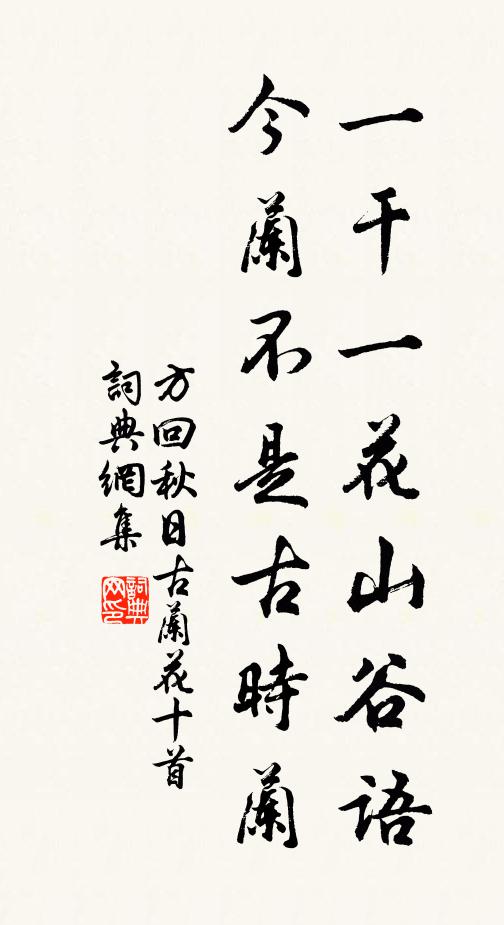 一干一花山谷語
今蘭不是古時蘭
方回秋日古蘭花十首
詞典網集
詞典
网印